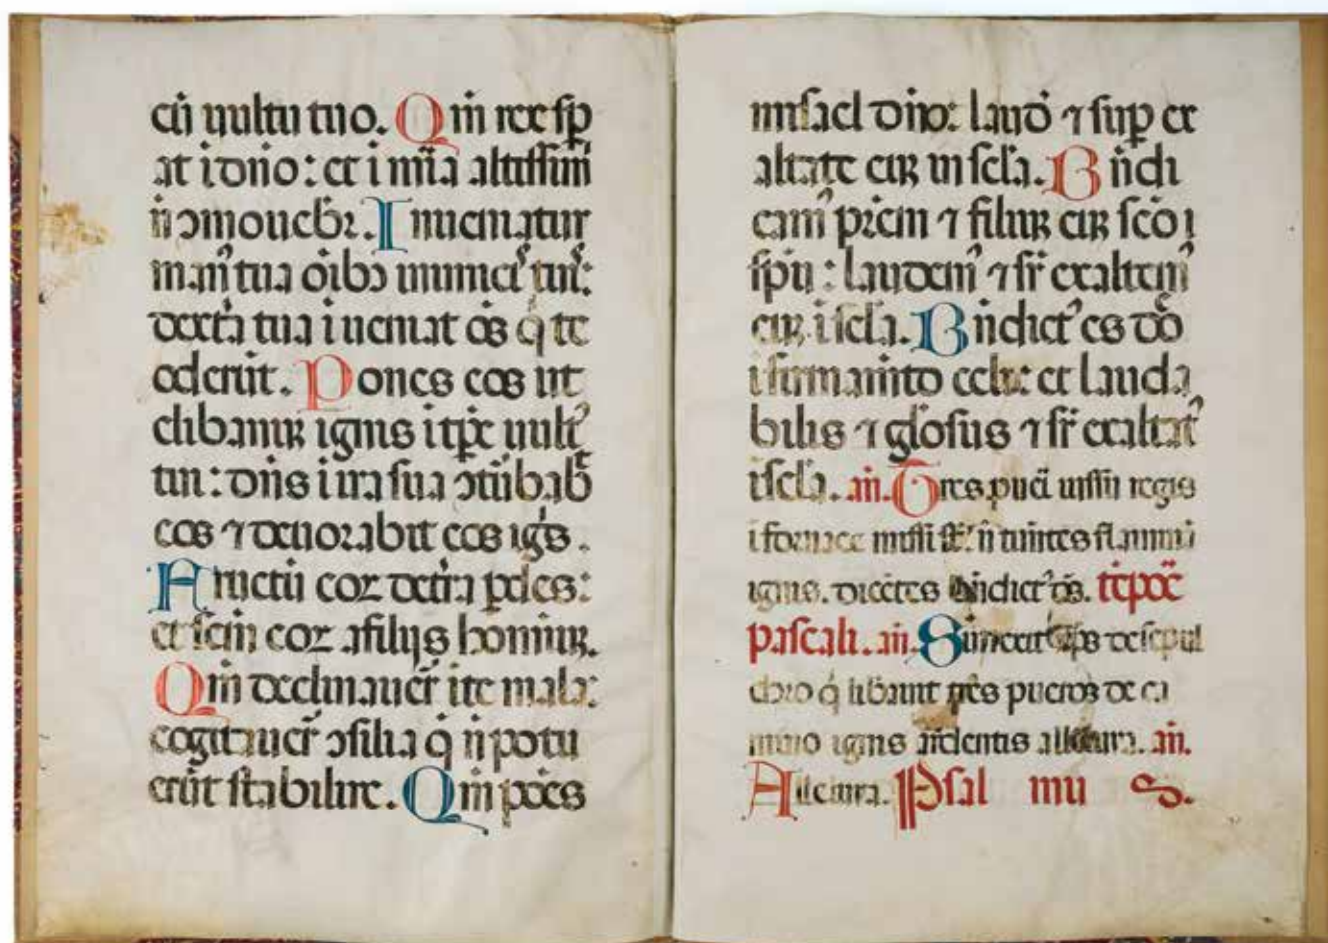 cū uultu tuo. Qm̄ rex sp̄
at i dn̄o: et i mīa altissimi
n̄ ɔmouebr̄. Inueniatur
man᾽ tua oībɔ inimic᾽ tuis᾽:
dextra tua i ueniat os̄ q̄ te
oderūt. Pones eos ut
clibanuꝫ ignis i tp̄e uult᾽
tui: dn̄s i ira sua ɔtūbab᾽
eos ⁊ deuorabit eos igīs.
Fructū eoꝝ de tr̄a ꝑdes:
et sem̄ eoꝝ a filijs hominuꝫ.
Qm̄ declinauer̄ i te mala:
cogitauer̄ ɔsilia q̄ n̄ potu
erūt stabilire. Qm̄ pōes
misael dn̄o: laud᾽ ⁊ suꝑ ex
altate euꝫ in scl̄a. Bn̄di
cam᾽ pr̄em ⁊ filiuꝫ cuꝫ scō
spū: laudem᾽ ⁊ sr̄ exaltem᾽
euꝫ i scl̄a. Bn̄dict᾽ es dn̄e
i firmamīto celi: et lauda
bilis ⁊ gl̄osus ⁊ sr̄ exaltat᾽
i scl̄a. an̄. Tres pueri iussu regis
i fornace missi st̄ n̄ timentes flammā
ignis. dicētes bn̄dict᾽ ds̄. tēpoē
pascali. an̄. Surrexit xp̄s de sepul
chro q̄ libauit tres pueros de ca
mino ignis ardentis alleluia. an̄.
Alleluia. Psal mu s.